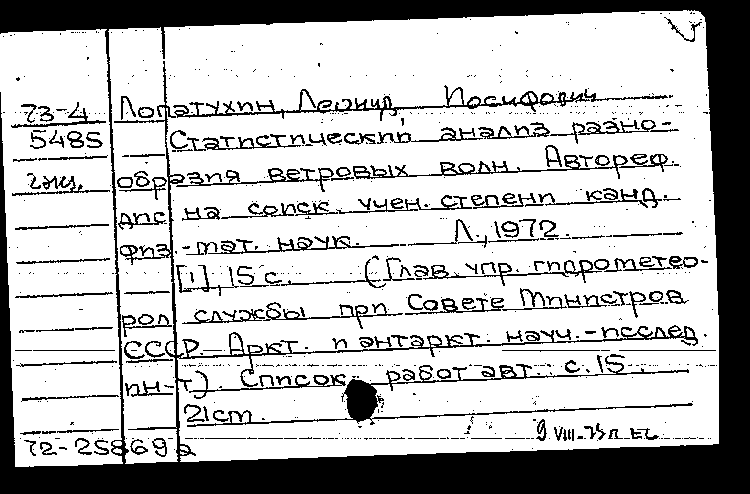 73-4 Лопатухин, Леонид Иосифович
5485 Статистический анализ разно-
2экз. образия ветровых волн. Автореф.
дис на соиск. учен. степени канд.
физ.-мат. наук. Л., 1972.
[1], 15 с. (Глав. упр. гидрометео-
рол службы при Совете Министров
СССР. Аркт. и антаркт. науч.-исслед.
ин-т). Список работ авт.: с. 15.
21 cm.
72-25869a 9 VIII-73